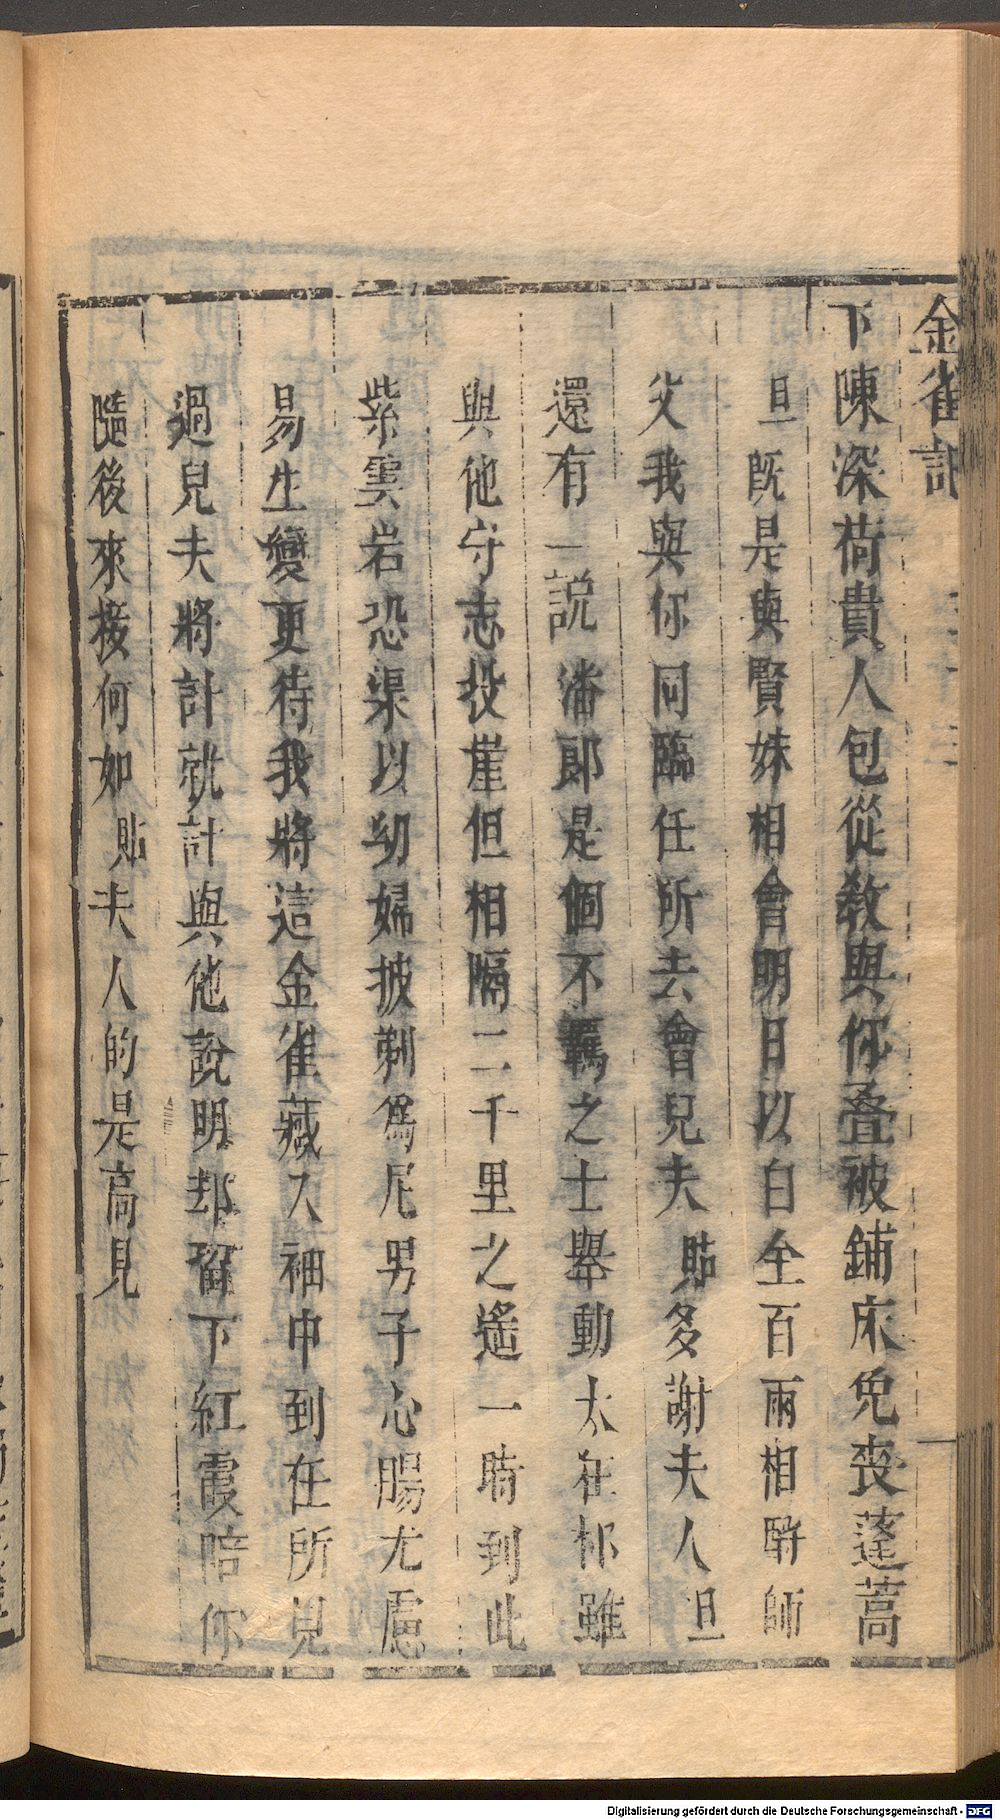 金雀記
下陳深荷貴人包從教與你疊被鋪床免喪蓬蒿
旦既是與賢妹相會明日以白金百兩相酧師
父我與你同臨任所去會兒夫貼多謝夫人旦
還有一説潘郎是個不羈之士舉動太在郍雖
與他守志投崖但相隔二千里之遙一時到此
紫雲岩恐渠以幼婦披剃爲尼男子心腸尤慮
易生變更待我將這金雀藏入袖中到任所見
過兒夫將計就計與他說明却留下紅霞陪你
隨後來接何如貼夫人的是高見
Digitalisierung gefördert durch die Deutsche Forschungsgemeinschaft - DFG